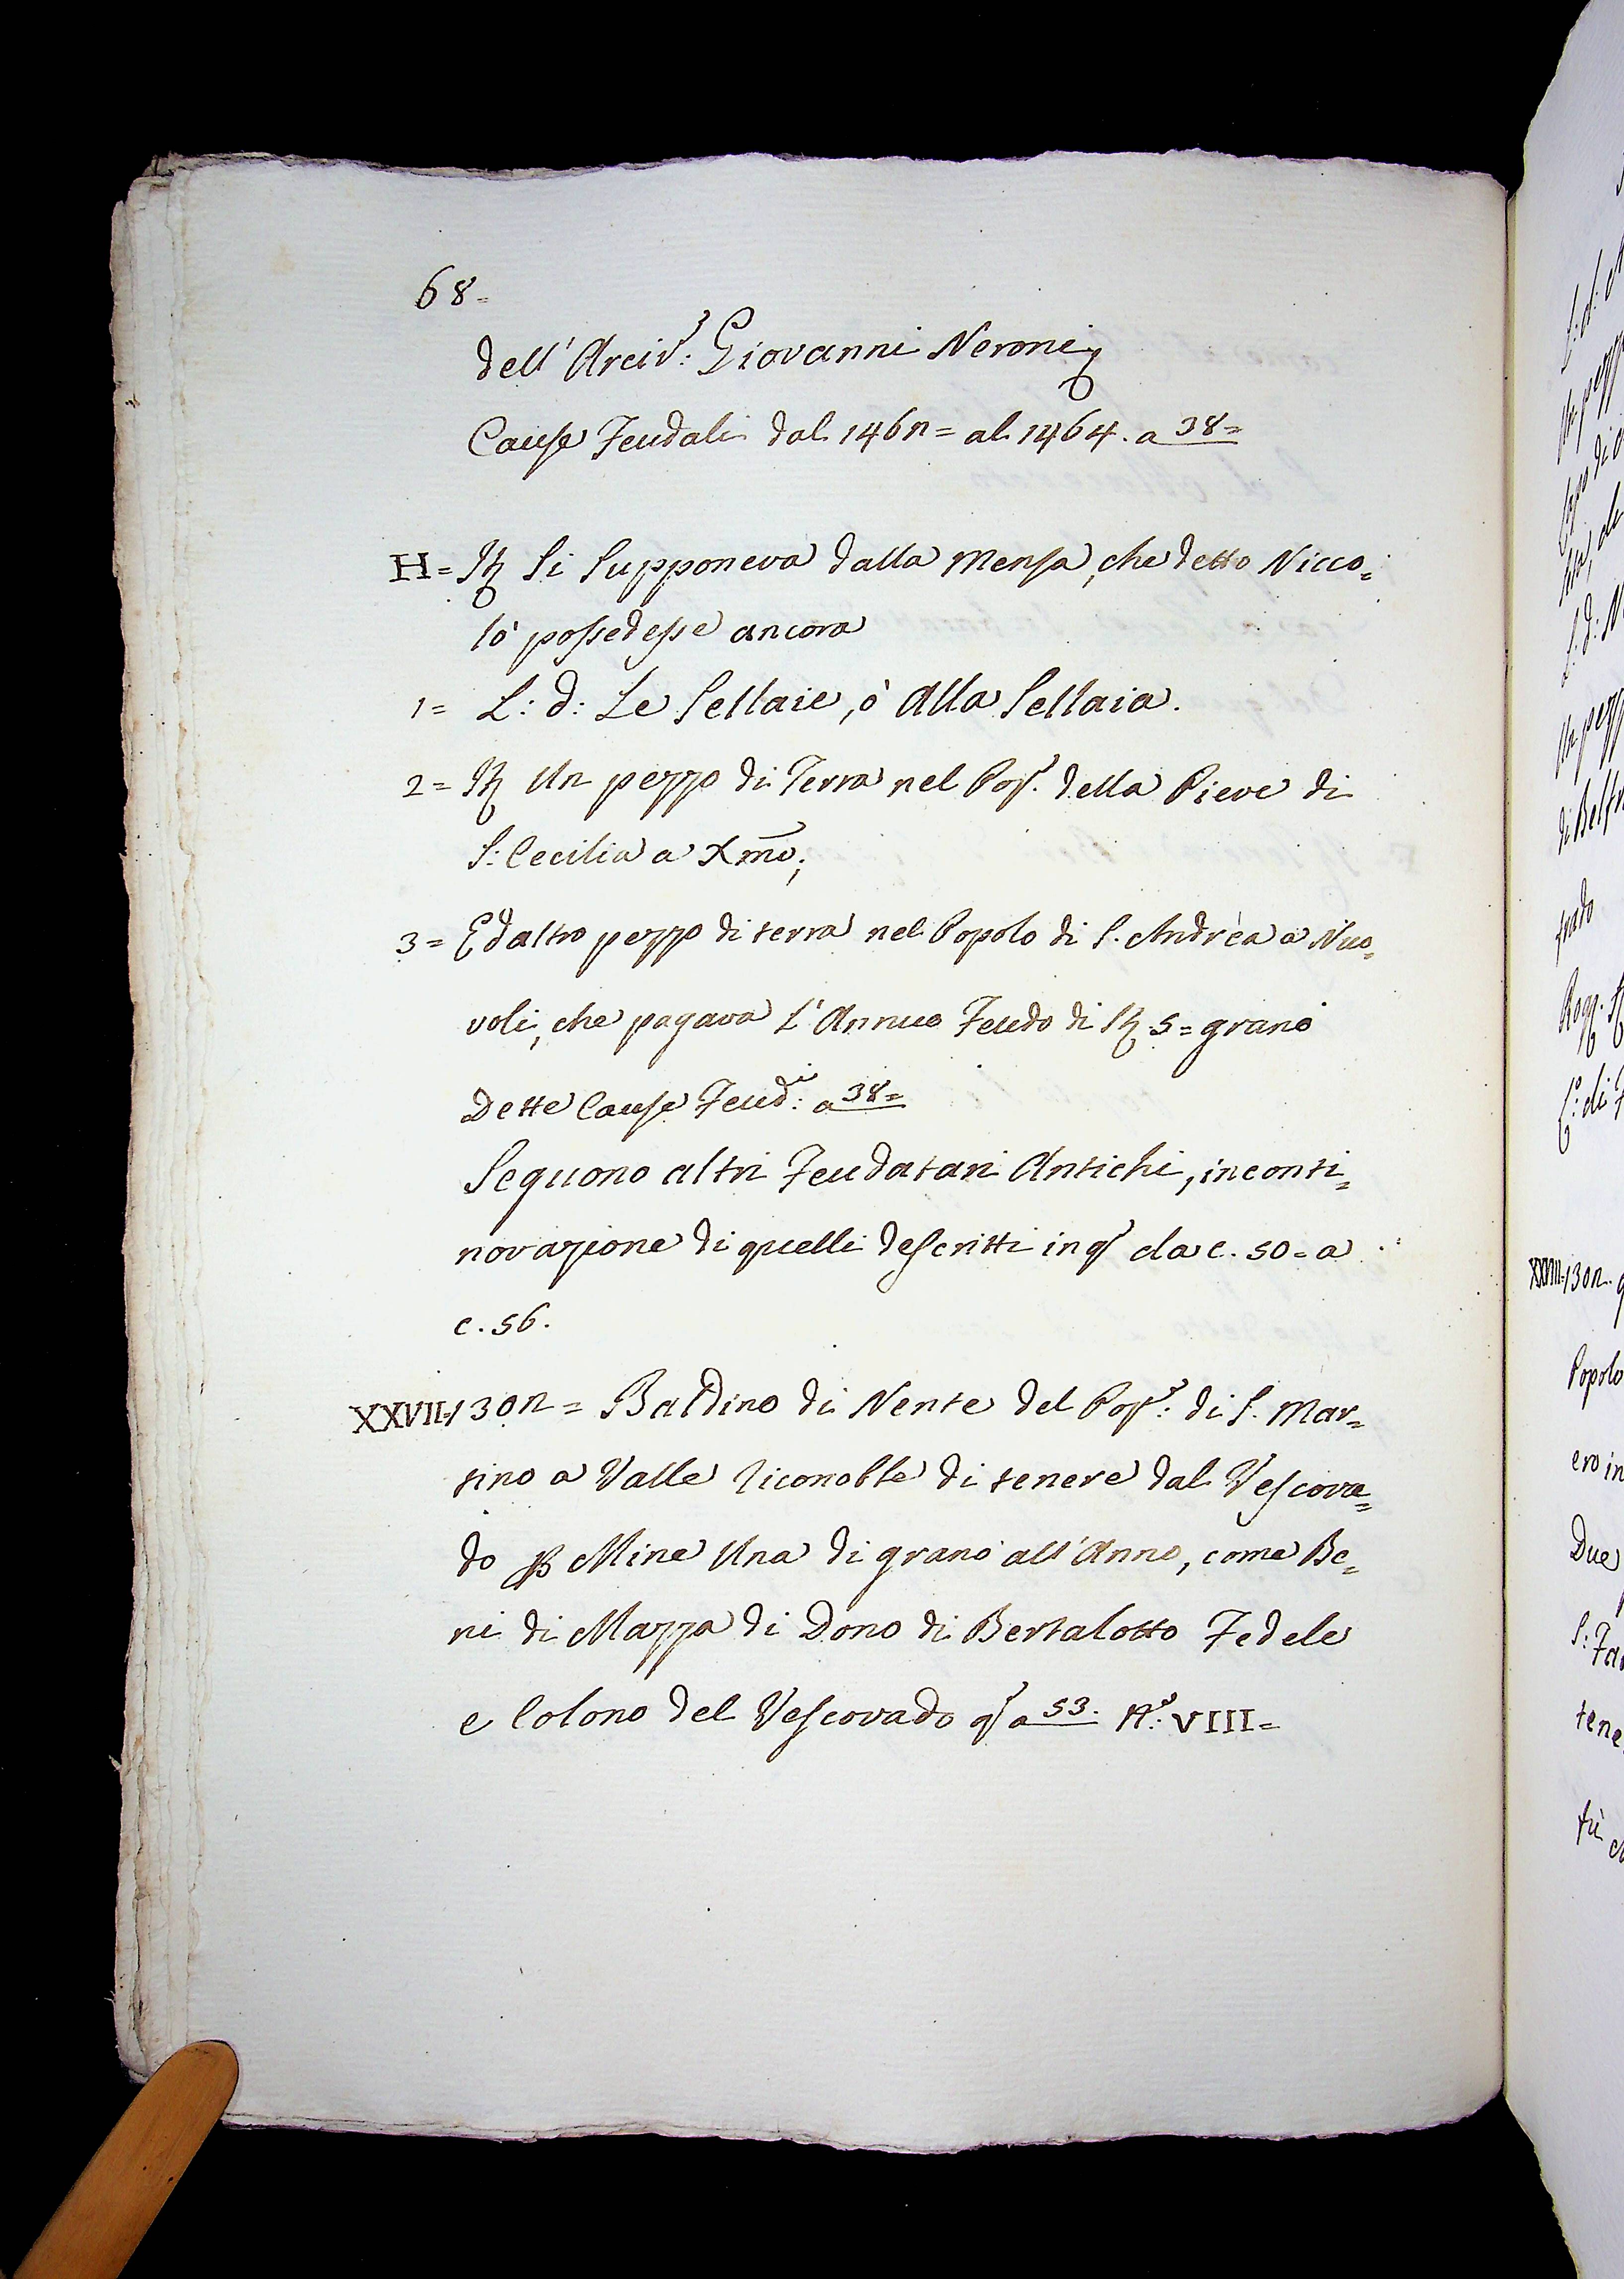 68=
dell'Arciv.: Giovanni Neroni
Cause Feudali dal 1462= al 1464. a 38=
H= It. Si Supponeva dalla Mensa, che detto Nicco=
lò possedesse ancora
1= L: d: Le Sellaie, ò Alla Sellaia.
2= It. Un pezzo di Terra nel Pop. della Pieve di
S: Cecilia a Xmo;
3= Ed altro pezzo di terra nel Popolo di S. Andrèa a Nuo=
voli, che pagava l'Annuo Feudo di St. 5= grano
Dette Cause Feud.i: a 38=
Seguono altri Feudatari Antichi, in conti=
novazione di quelli descritti in q. da c. 50= a
c. 56.
XXVII=1302= Baldino di Nente del Pop.: di S. Mar=
tino a Valle riconobbe di tenere dal Vescova=
do p Mine Una di grano all'Anno, come Be=
ni di Mazza di Dono di Bertalotto Fedele
e Colono del Vescovado q. a 53. N.: VIII=
XXVIII=1302.
Popolo
ero in
Due
S: Fa
tene
fù